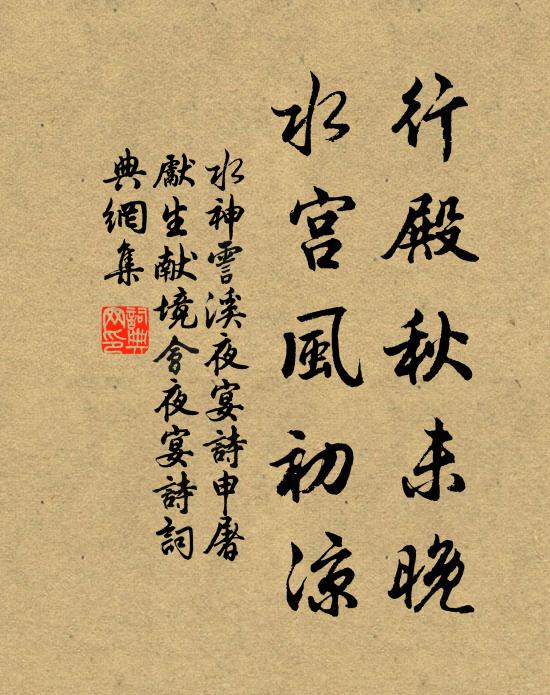 行殿秋未晚
水宫風初涼
水神霅溪夜宴詩申屠
獻生献境會夜宴詩詞
典網集
詞典
网印